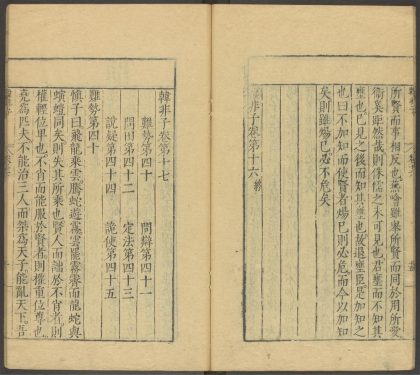 所賢而事相反也燕噲雖舉所賢而同於用所愛
衛奚距然哉則侏儒之未可見也君壅而不知其
壅也已見之後而知其壅也故退壅臣是加知之
也曰不加知而使賢者煬已則必危而今以加知
矣則雖煬已必不危矣
韓非子卷第十六 終
韓非子卷第十七
難勢第四十 問辯第四十一
問田第四十二 定法第四十三
說疑第四十四 詭使第四十五
難勢第四十
慎子曰飛龍乘雲騰蛇遊霧雲罷霧霽而龍蛇與
螾螘同矣則失其所乘也賢人而詘於不肖者則
權輕位卑也不肖而能服於賢者則權重位尊也
堯為匹夫不能治三人而桀為天子能亂天下吾